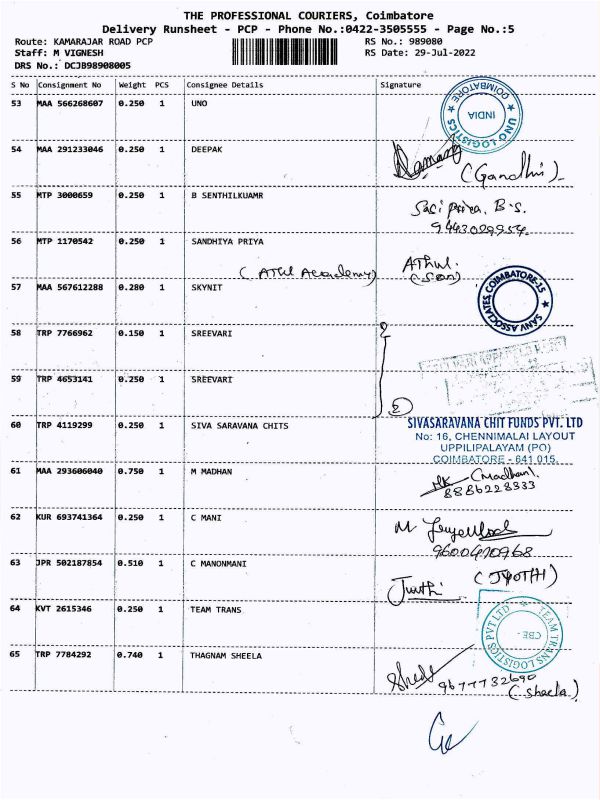 THE PROFESSIONAL COURIERS, Coimbatore
Delivery Runsheet - PCP - Phone No.:0422-3505555 - Page No.:5
Route: KAMARAJAR ROAD PCP RS No.: 989080
Staff: M VIGNESH RS Date: 29-Jul-2022
DRS No.: DCJB98908005
S No Consignment No Weight PCS Consignee Details Signature
53 MAA 566268607 0.250 1 UNO
COIMBATORE INDIA UNO LOGISTICS
54 MAA 291233046 0.250 1 DEEPAK
(Gandhi)
55 MTP 3000659 0.250 1 B SENTHILKUAMR Sasi priya. B.S.
9443029954
56 MTP 1170542 0.250 1 SANDHIYA PRIYA Athul.
(Athul Academy) (SON)
57 MAA 567612288 0.280 1 SKYNIT
SANV ASSOCIATES COIMBATORE-15
58 TRP 7766962 0.150 1 SREEVARI
59 TRP 4653141 0.250 1 SREEVARI
2
60 TRP 4119299 0.250 1 SIVA SARAVANA CHITS SIVASARAVANA CHIT FUNDS PVT. LTD
No: 16, CHENNIMALAI LAYOUT
UPPILIPALAYAM (PO)
COIMBATORE - 641 015.
61 MAA 293606040 0.750 1 M MADHAN (Madhan).
8886228333
62 KUR 693741364 0.250 1 C MANI M
9600410968
63 JPR 502187854 0.510 1 C MANONMANI (JYOTHI)
Jyothi
64 KVT 2615346 0.250 1 TEAM TRANS
TEAM TRANS LOGISTICS PVT LTD CBE-
65 TRP 7784292 0.740 1 THAGNAM SHEELA
9677732690
(Sheela)